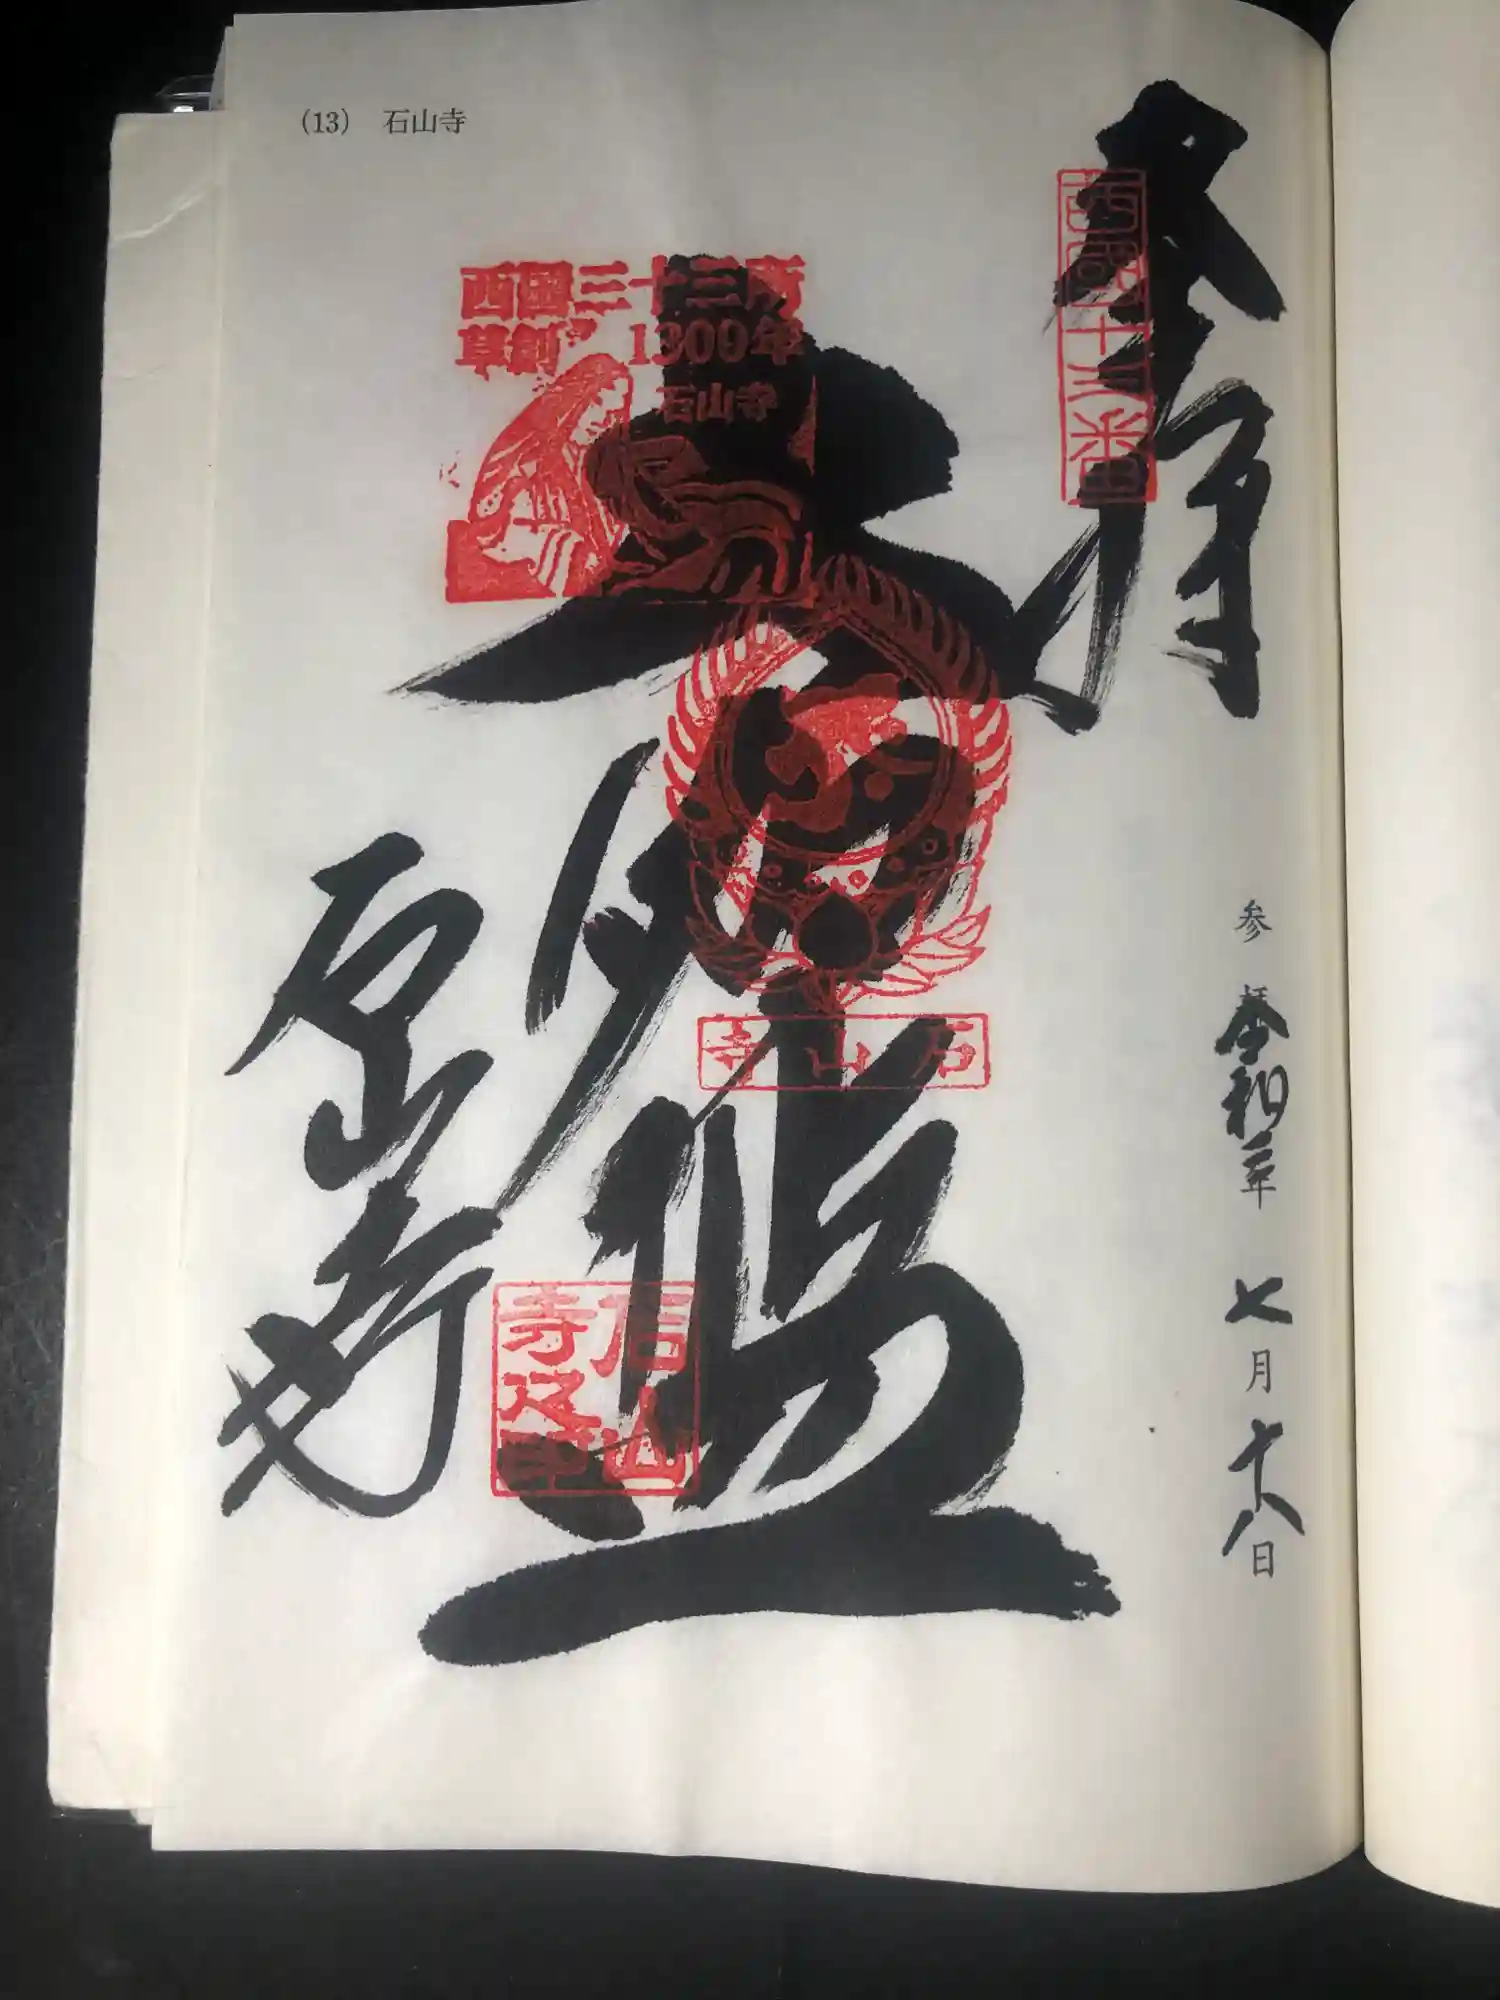 (13) 石山寺
奉拝
西国十三番
西国三十三所
草創 1300年
石山寺
大悲殿
石山寺
石山寺
石山寺之印
参拝 令和二年 七月 十八日